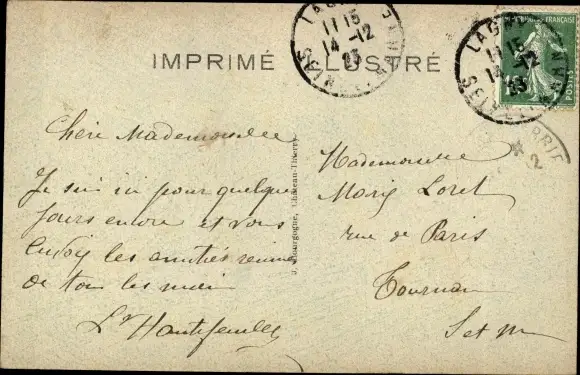 IMPRIMÉ ILLUSTRÉ
LAGNY
11 15
14 -12
23
SEINE-ET-MARNE
LAGNY
11 15
14 -12
23
SEINE-ET-MARNE
FRANÇAISE
POSTES
BRIE
2
Chère Mademoiselle
Je suis ici pour quelque
jours encore et vous
envoy les amitiés reunies
de tous les miens
L. Hautefeuille
J. Bourgogne, Château-Thierry
Mademoiselle
Marie Loret
rue de Paris
Tournan
S et M